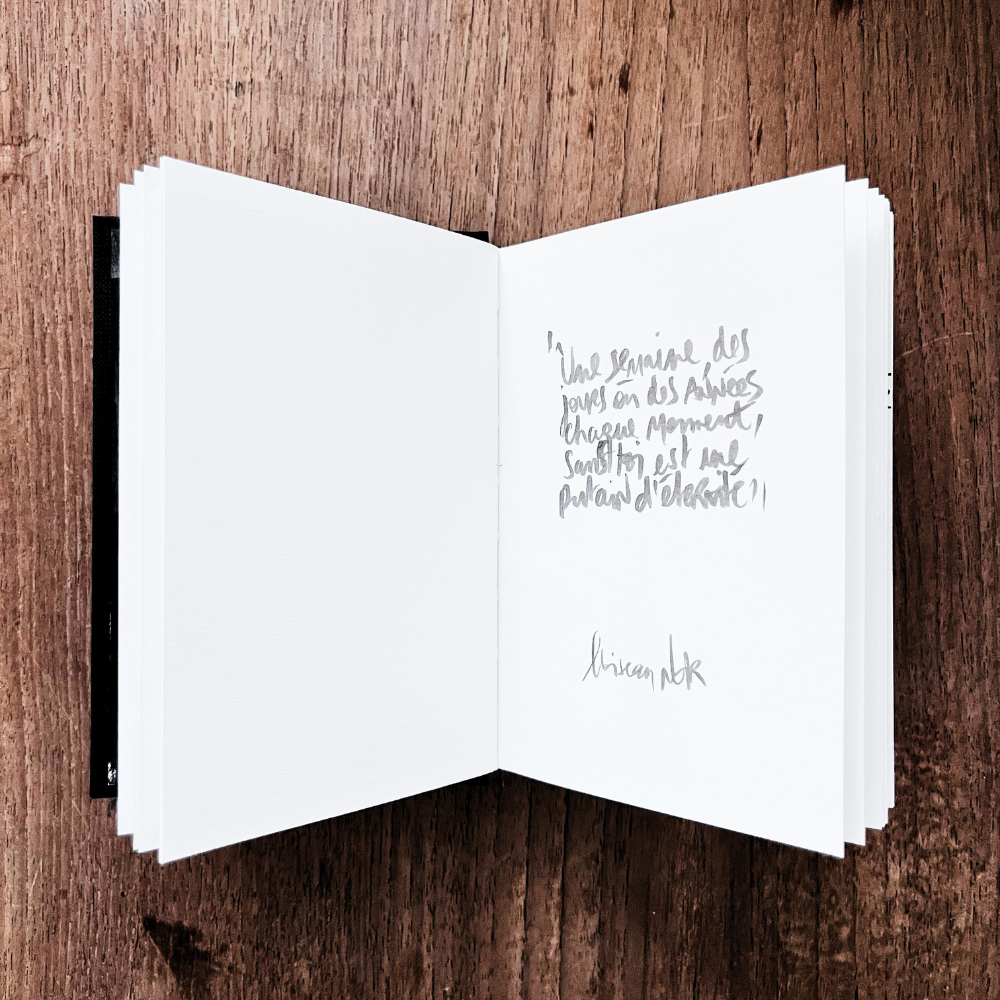 "Une semaine, des
jours ou des années
chaque moment,
sans toi est une
putain d'éternité"